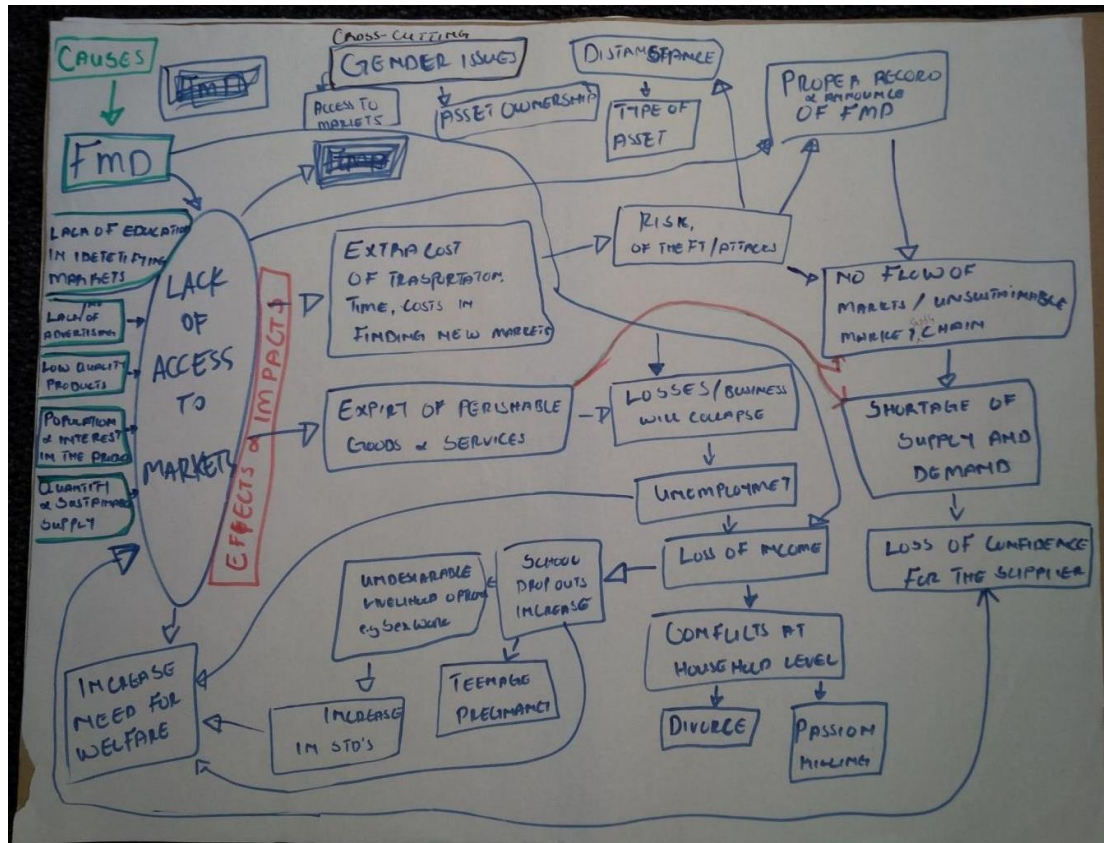 CAUSES
FMD
CROSS-CUTTING
GENDER ISSUES
ACCESS TO
MARKETS
ASSET OWNERSHIP
TYPE OF
ASSET
PROPER RECORD
& ANNOUNCE
OF FMD
LACK OF EDUCATION
IN IDETETIFYING
MARKETS
LACK OF
ADVERTISING
LOW QUALITY
PRODUCTS
POPULATION
& INTEREST
IN THE
QUANTITY
& SUSTAINABLE
SUPPLY
LACK
OF
ACCESS
TO
MARKETS
EFFECTS & IMPACTS
EXTRA COST
OF TRASPORTATION,
TIME, COSTS IN
FINDING NEW MARKETS
RISK,
OF THEFT/ATTACKS
NO FLOW OF
MARKTS / UNSUSTAINABLE
MARKET CHAIN
EXPIRT OF PERISHABLE
GOODS & SERVICES
LOSSES/BUSINESS
WILL COLLAPSE
SHORTAGE OF
SUPPLY AND
DEMAND
UNEMPLOYMET
LOSS OF INCOME
LOSS OF CONFIDENCE
FOR THE SUPPLIER
SCHOOL
DROP OUTS
INCREASE
UNDESIARABLE
e.g Sex Work
CONFLICTS AT
HOUSEHOLD LEVEL
INCREASE
NEED FOR
WELFARE
INCREASE
IN STD'S
TEENAGE
PREGNANCY
DIVORCE
PASSION
KILLING